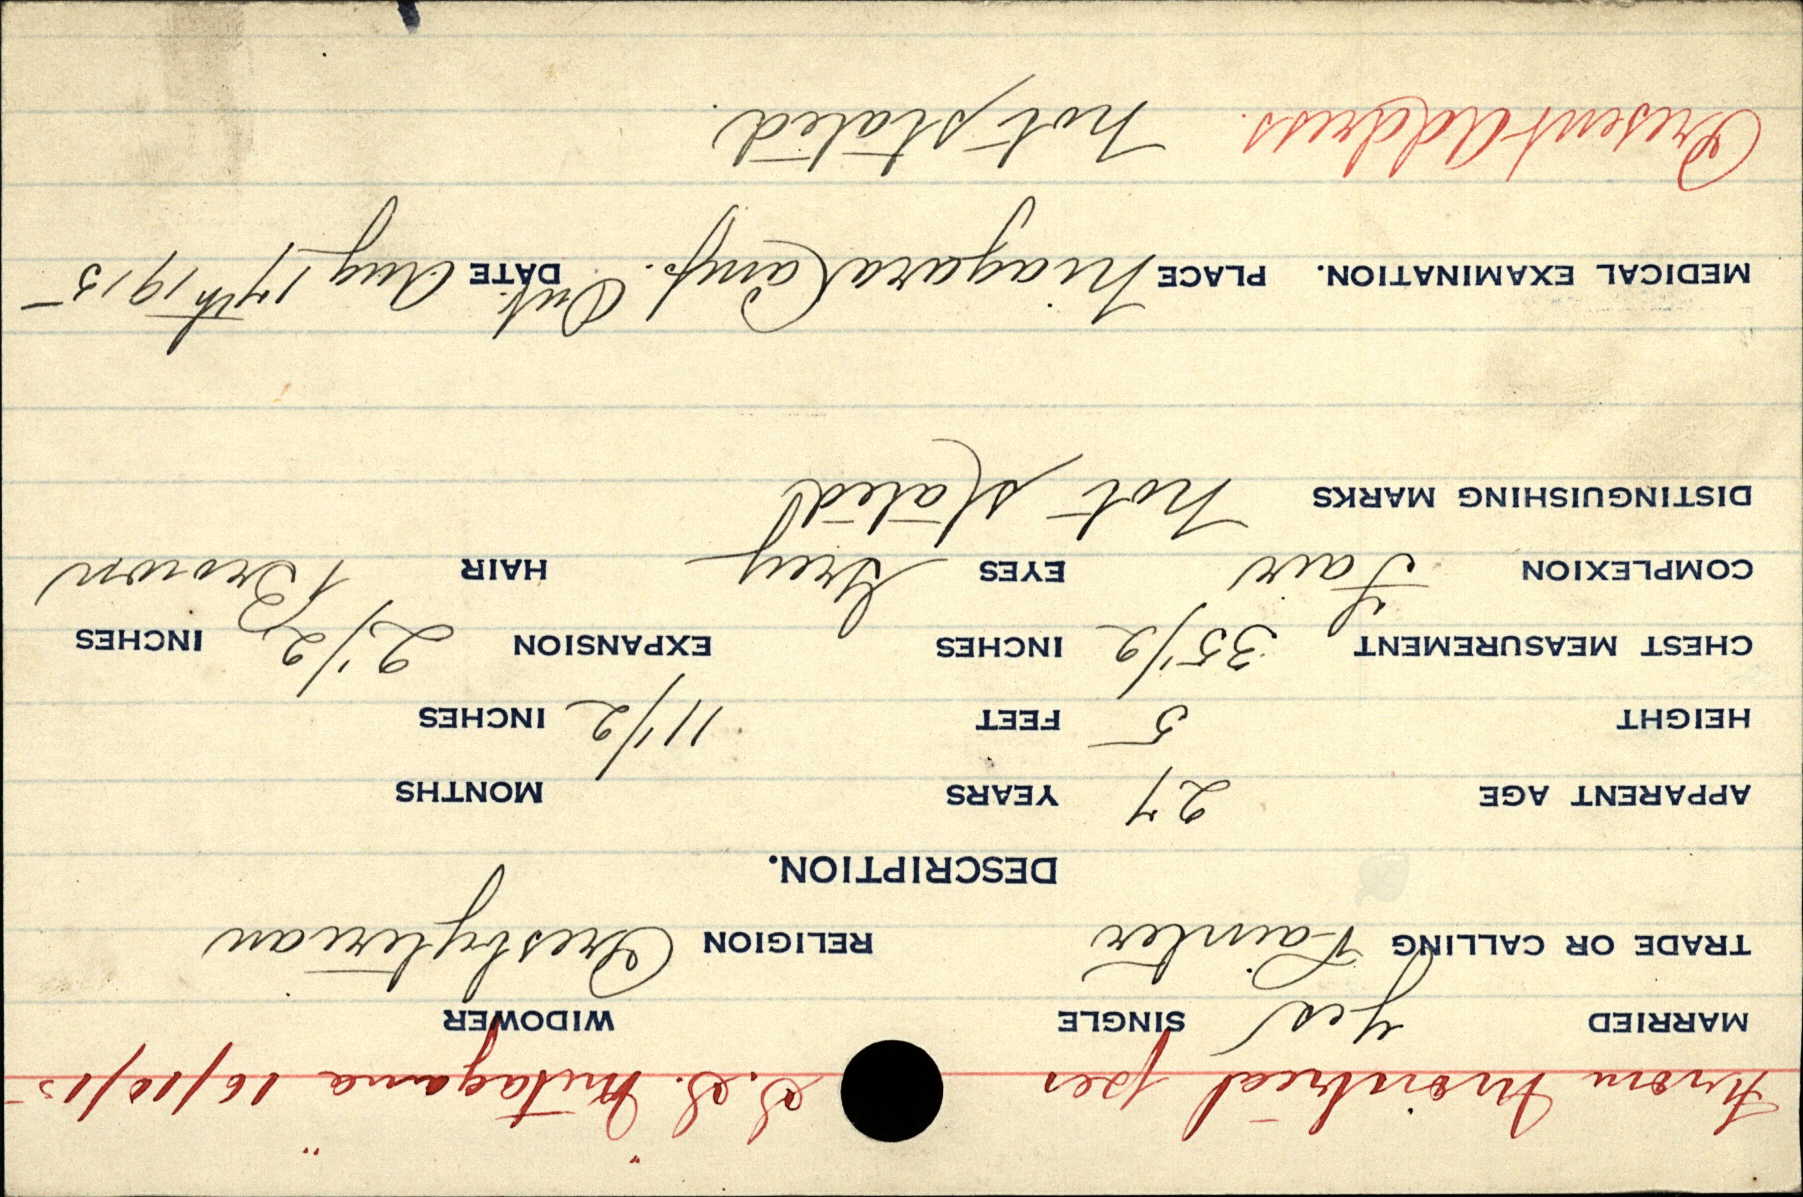 From Montreal per S.S. "Metagama" 16/10/15
MARRIED Yes SINGLE WIDOWER
TRADE OR CALLING Painter RELIGION Presbyterian
DESCRIPTION.
APPARENT AGE 27 YEARS MONTHS
HEIGHT 5 FEET 11 1/2 INCHES
CHEST MEASUREMENT 35 1/2 INCHES EXPANSION 2 1/2 INCHES
COMPLEXION Fair EYES Grey HAIR Brown
DISTINGUISHING MARKS not stated
MEDICAL EXAMINATION. PLACE Niagara Camp. Ont. DATE Aug 17th 1915
Present Address. not stated.